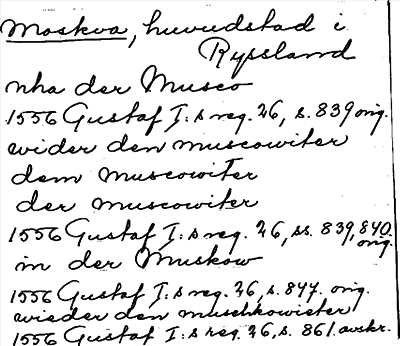 Moskva, huvudstad i
Ryssland
nha der Musco
1556 Gustaf I:s reg. 26, s. 839 orig.
wider den muscowiter
dem muscowiter
der muscowiter
1556 Gustaf I:s reg. 26, ss. 839, 840 orig.
in der Muskow
1556 Gustaf I:s reg. 26, s. 847. orig.
wieder den muschkowister
1556 Gustaf I:s reg. 26, s. 861. avskr.